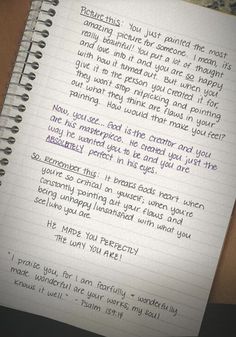 Picture this: You just painted the most
amazing picture for someone. I mean, it's
really beautiful! You put a lot of thought
and love into it and you are so happy
with how it turned out. But when you
give it to the person you created it for,
they won't stop nitpicking and pointing
out what they think are flaws in your
painting. How would that make you feel?
Now, you see.. God is the creator and you
are his masterpiece. He created you just the
way he wanted you to be and you are
ABSOLUTELY perfect in his eyes.
So, Remember this: It breaks God's heart when
you're so critical on yourself; when you're
constantly pointing out your flaws and
being unhappy/unsatisfied with what you
see/who you are.
HE MADE YOU PERFECTLY
THE WAY YOU ARE!
"I praise you, for I am fearfully + wonderfully
made. wonderful are your works; my soul
knows it well." - Psalm 139:14